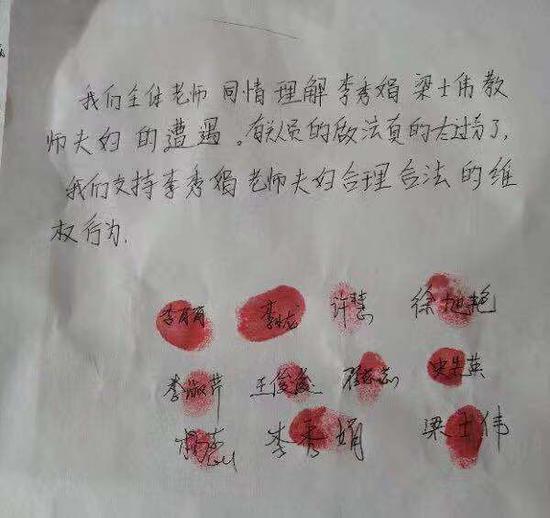 我们全体老师同情理解李秀娟梁士伟教
师夫妇的遭遇。有关人员的做法真的太过方了,
我们支持李秀娟老师夫妇合理合法的维
权行为.
许慧 徐旭艳
李淑芹 史先英
李秀娟 梁士伟